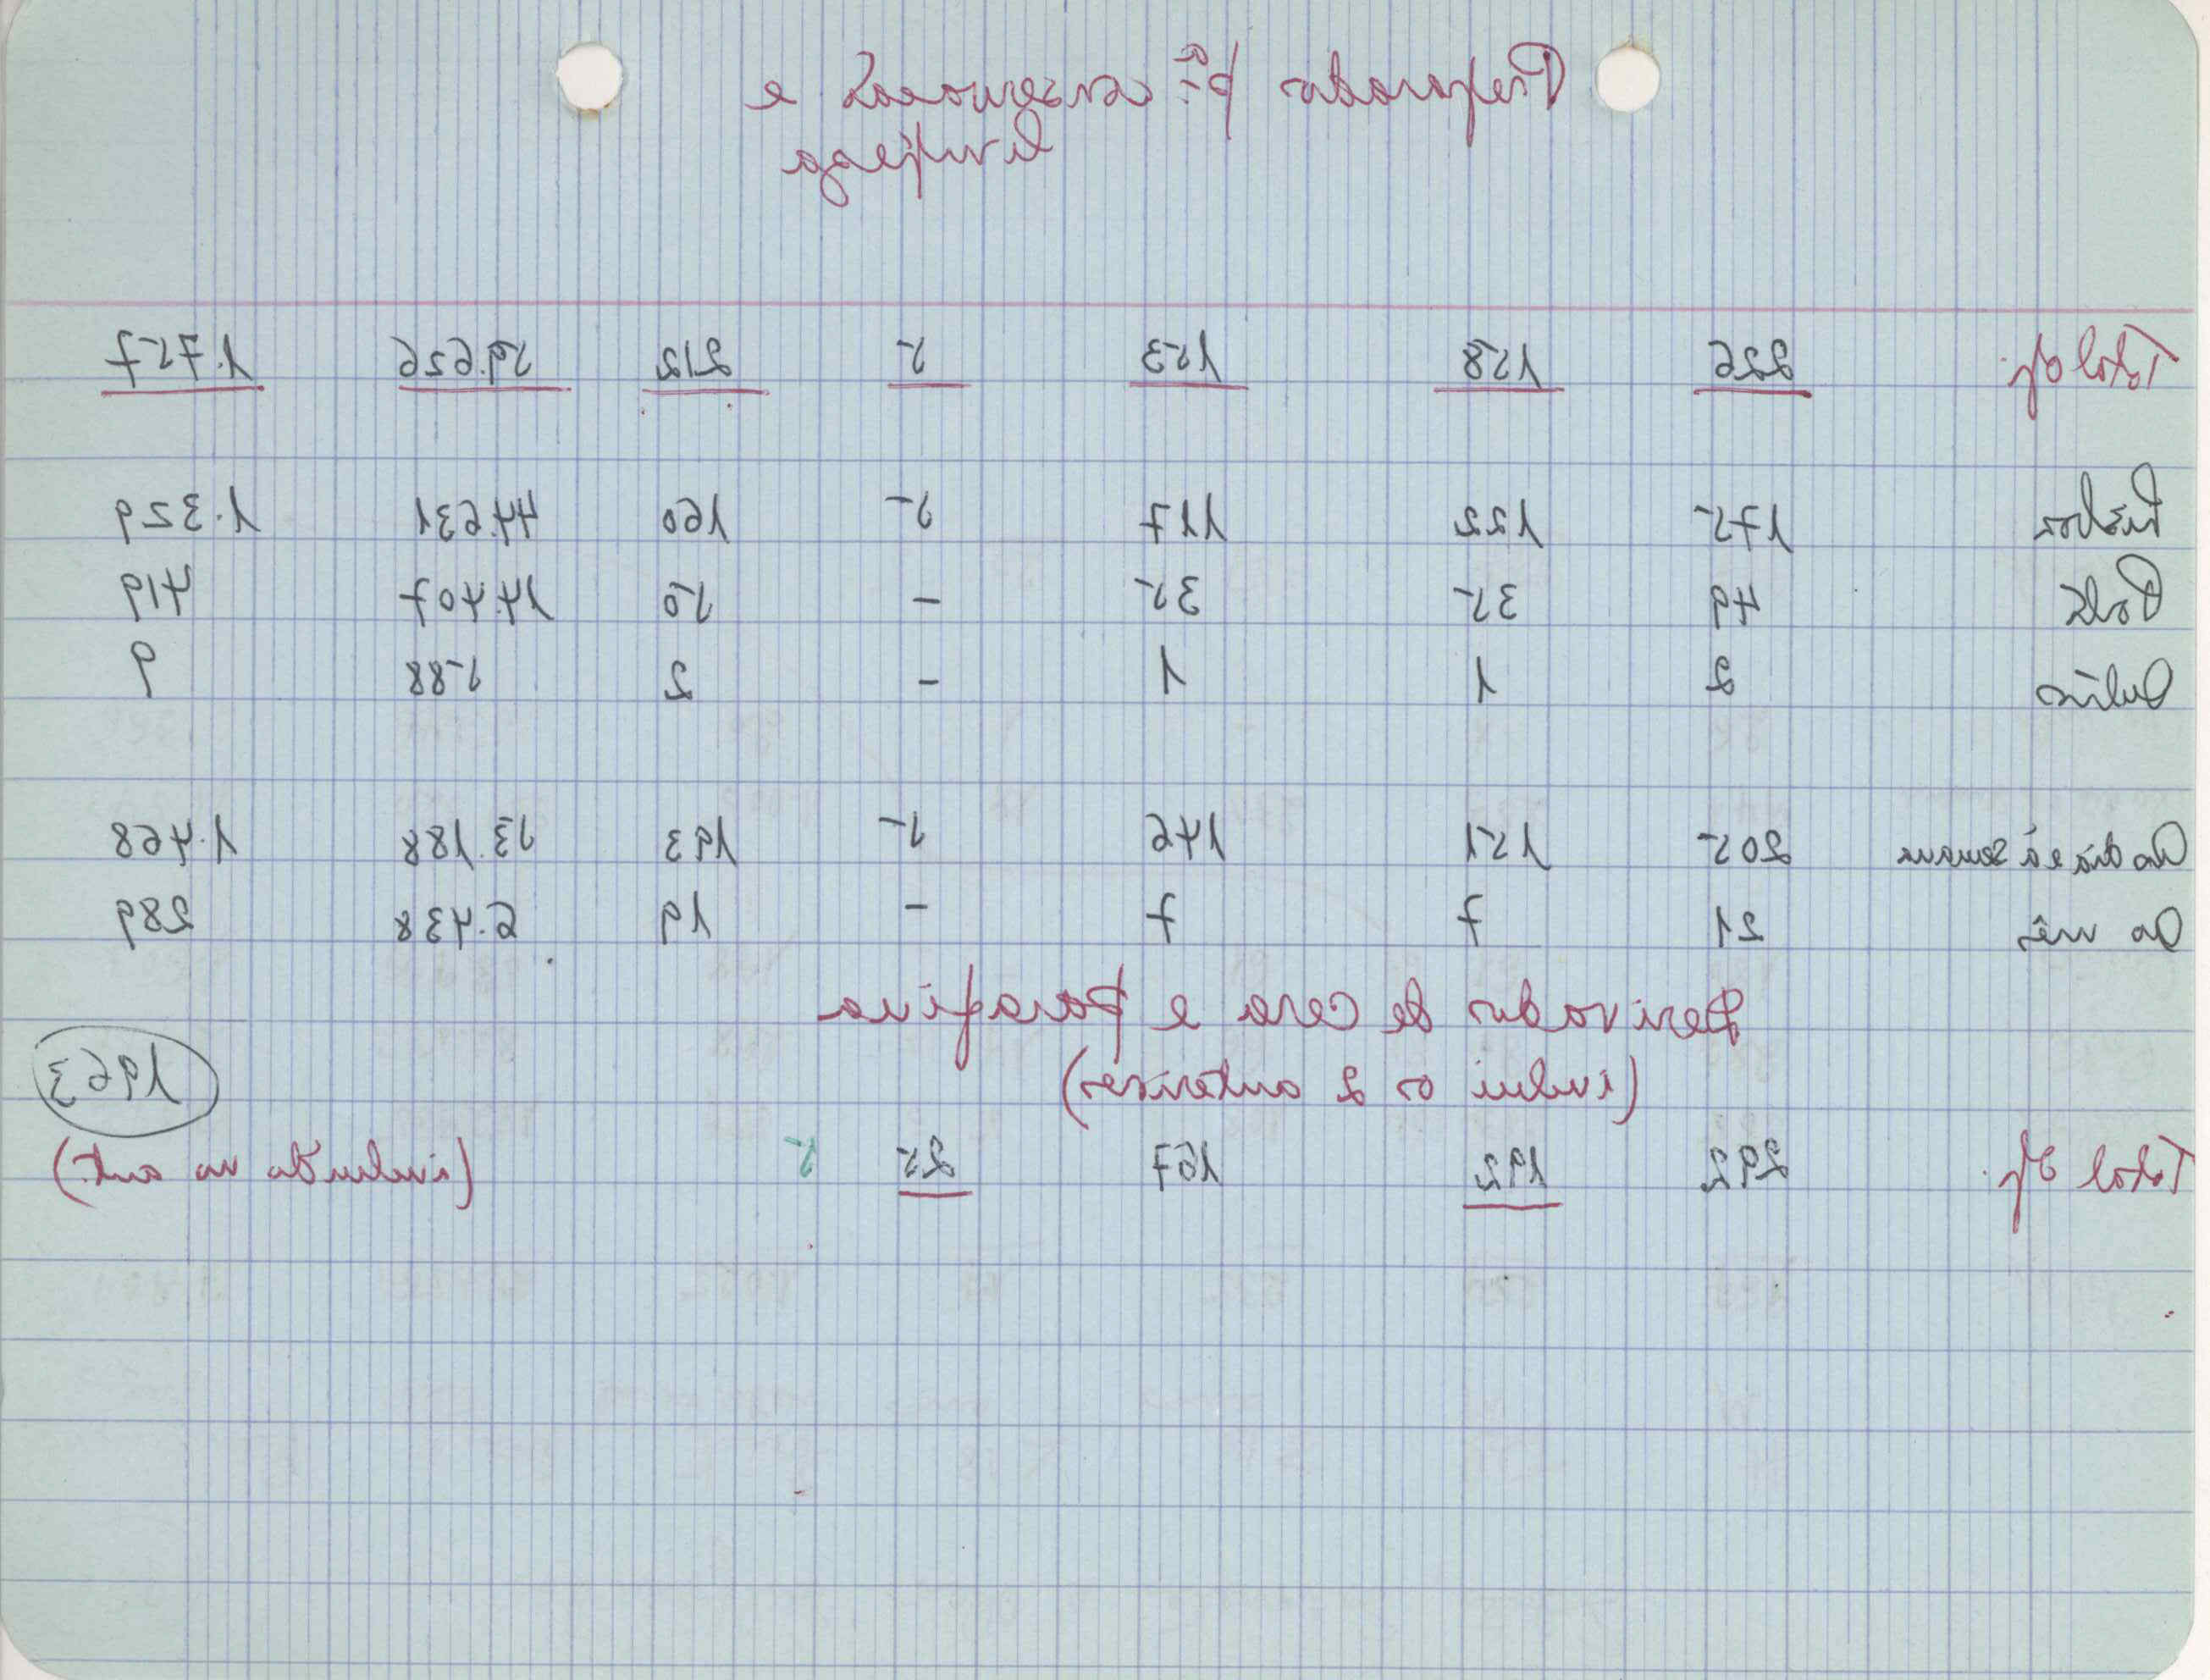 Preparados pª conservação e
limpeza
Total of. 226 158 153 5 212 59.626 1.757
Lisboa 175 122 117 5 160 44.631 1.329
Porto 49 35 35 - 50 14.407 419
Outros 2 1 1 - 2 588 9
Ao dia e à semana 205 151 146 5 193 53.188 1.468
Ao mês 21 7 7 - 19 6.438 289
Derivados de cera e parafina
(inclui os 2 anteriores)
1963
Total Of. 292 192 167 25 5 (incluido no ant.)